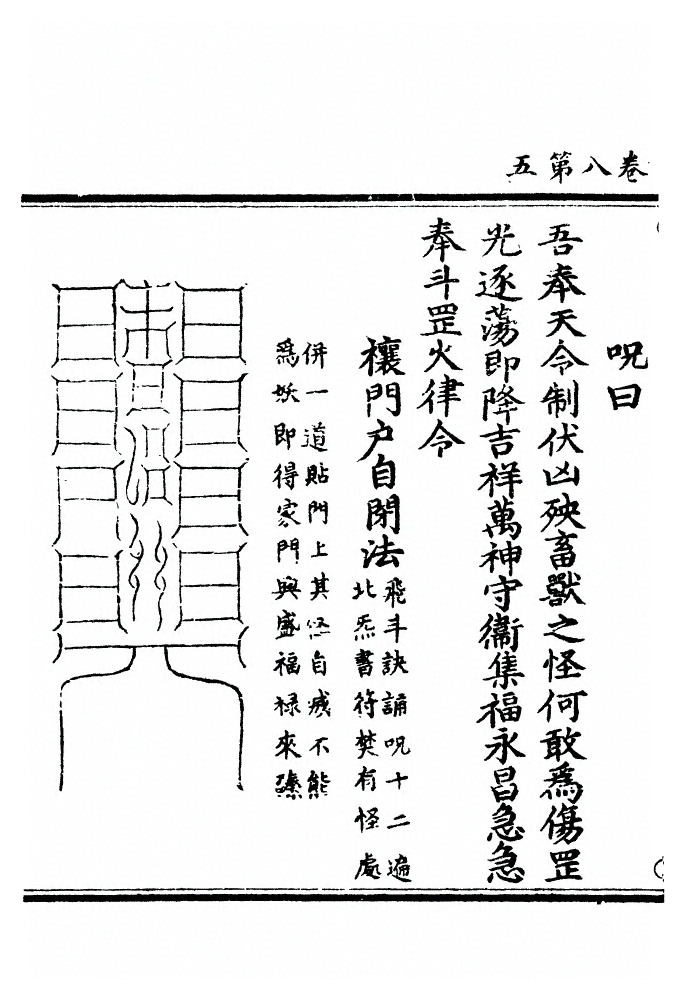 卷八第五
呪曰
吾奉天令制伏凶殃畜獸之怪何敢為傷罡
光逐蕩即降吉祥萬神守衞集福永昌急急
奉斗罡火律令
禳門户自閉法
飛斗訣誦呪十二遍
北炁書符焚有怪處
併一道貼門上其怪自滅不能
為妖即得家門興盛福禄來臻